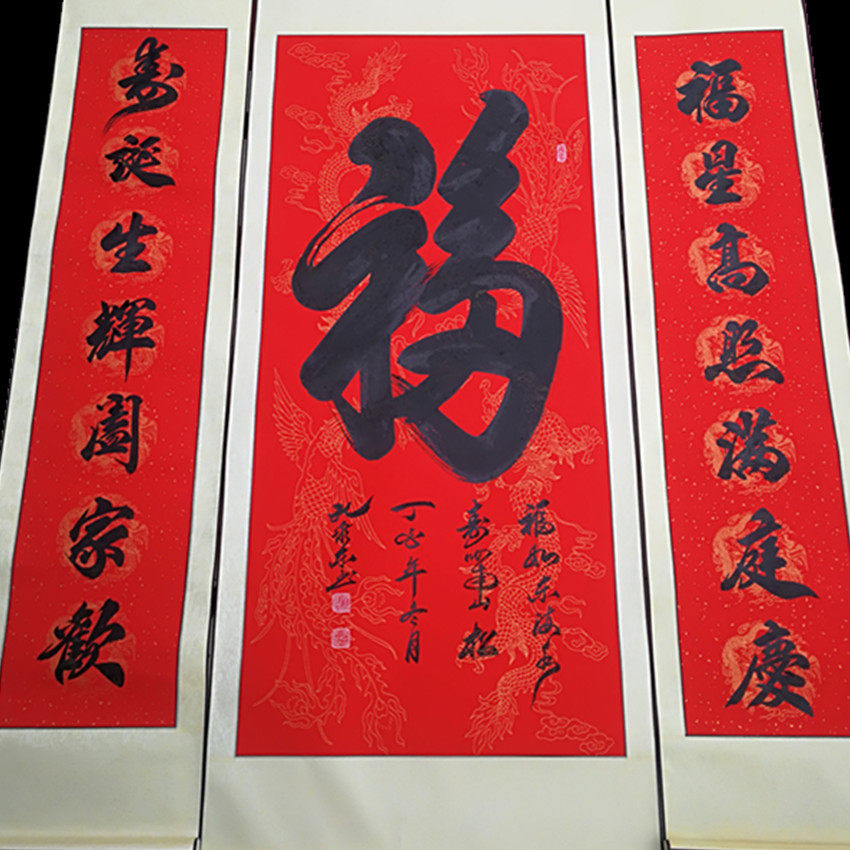 福星高照满庭慶
福
福如东海水
寿比南山松
丁酉年冬月
寿诞生輝阖家歡